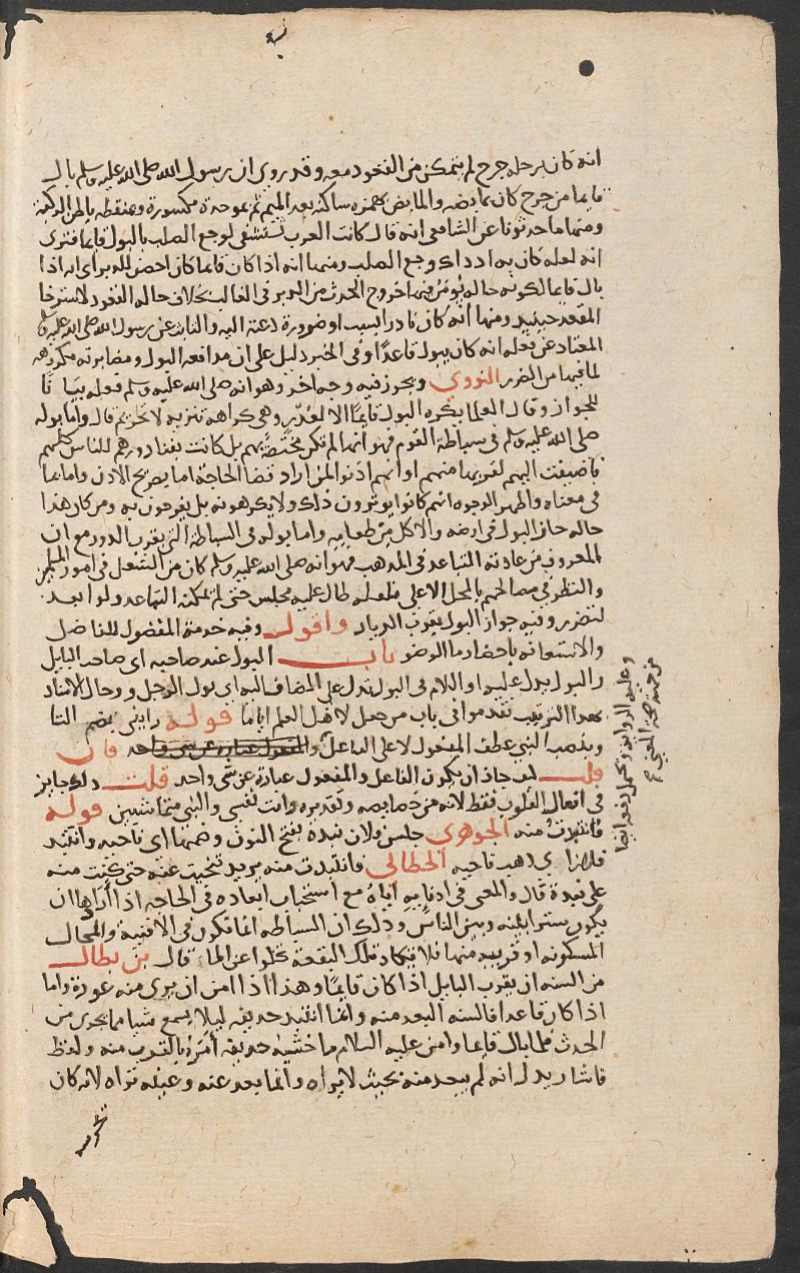 انه كان برجله جرح لم يتمكن من القعود معه وقد روى ان رسول الله صلى الله عليه وسلم بال
قايما من جرح كان بمابضه والمابض بهمزه ساكنه بعد الميم ثم بموحدة مكسورة ومنقطه باطن الركبة
ومنها ما حدثونا عن الشافعى انه قال كانت العرب تستشفى لوجع الصلب بالبول قايما فنرى
انه لعله كان به اذ ذاك وجع الصلب ومنها انه اذا كان قايما كان احصن للدبر اى انه اذا
بال قايما لكونه حاله يومن فيها خروج الحدث من الدبر فى الغالب بخلاف حاله القعود لاسترخا
المقعد حينيذ ومنها انه كان نادرا بسبب او ضرورة دعته اليه والثابت عن رسول الله صلى الله عليه وسلم
المعتاد من فعله انه كان يبول قاعدا وفى الخبر دليل على ان مدافعه البول ومصابرته مكروهه
لما فيها من الضرر النووي ويجوز فيه وجه اخر وهو انه صلى الله عليه وسلم فعله بيانا
للجواز وقال العلما يكره البول قايما الا لعذر وهى كراهه تنزيه لا تحريم قال واما بوله
صلى الله عليه وسلم فى سباطة القوم فهو انها لم تكن مختصة بهم بل كانت بفناء دورهم للناس كلهم
فاضيفت اليهم لقربها منهم او انهم اذنوا لمن اراد قضا الحاجة اما بصريح الاذن واما بما
فى معناه واظهر الوجوه انهم كانوا يوثرون ذلك ولا يكرهونه بل يفرحون به ومن كان هذا
حاله جاز البول فى ارضه والاكل من طعامه واما بوله فى السباطة التى بقرب الدور مع ان
المعروف من عادته التباعد فى المذهب فهو انه صلى الله عليه وسلم كان من الشغل فى امور المسلمين
والنظر فى مصالحهم بالمحل الاعلى فلعله طال عليه مجلس حتى لم يمكنه التباعد ولو ابعد
لتضرر وفيه جواز البول بقرب الديار واقول وفيه خدمة المفضول للفاضل
والاستعانه باحضار ما الوضو باب البول عند صاحبه اى صاحب البايل
والبول يدل عليه او اللام فى البول بدل على المضاف اليه اى بول الرجل ورجال الاسناد
بهذا الترتيب تقدموا فى باب من جعل لاهل العلم اياما قوله رايتنى بضم التا
وبنصب النبى عطف المفعول لا على الفاعل والمفعول عبارة عن شى واحد فان
قلت لم جاز ان يكون الفاعل والمفعول عبارة عن شى واحد قلت ذلك جايز
فى افعال القلوب فقط لانه من خصايصه وتقديره رايت نفسى والنبى متماشيين قوله
فانتبذت منه الجوهري جلس فلان نبذة بفتح النون وضمها اى ناحيه وانتبذ
فلان اى ذهب ناحيه الخطابي فانتبذت منه يريد تنحيت عنه حتى كنت منه
على نبذة قال والمعنى فى ادنايه اياه مع استحباب ابعاده فى الحاجه اذا ارادها ان
يكون سترا بينه وبين الناس وذلك ان السباطه انما تكون فى الافنية والمحال
المسكونه او قريبه منها فلا تكاد تلك البقعة تخلوا عن المار قال بن بطال
من السنه ان يقرب البايل اذا كان قايما وهذا اذا امن ان يرى منه عورة واما
اذا كان قاعدا فالسنه البعد منه وانما انتبذ حذيفه ليلا يسمع شيا مما يجرى من
الحدث فلما بال قايما وامن عليه السلام ما خشيه حذيفه امره بالقرب منه ولفظ
فاشار يدل انه لم يبعد منه بحيث لا يراه وانما بعد عنه وعينه تراه لانه كان